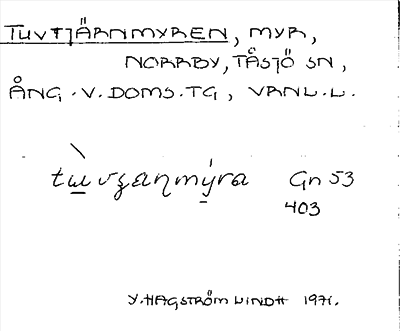 TUVTJÄRNMYREN, MYR,
NORRBY, TÅSJÖ SN,
ÅNG. V. DOMS. TG, VRNL. L.
tẁvʒaɳmýra Gn 53
403
Y. HAGSTRÖM LINDH 1971.